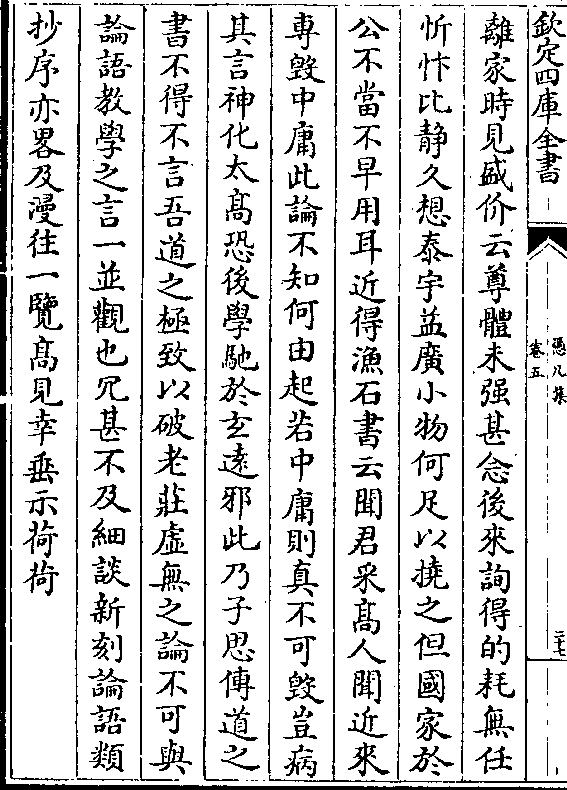 欽定四庫全書
憑几集
卷五
離家時見盛价云尊體未强甚念後來詢得的耗無任
忻忭比静久想泰宇益廣小物何足以撓之但國家於
公不當不早用耳近得漁石書云聞君采髙人聞近來
專毁中庸此論不知何由起若中庸則真不可毁豈病
其言神化太髙恐後學馳於玄遠邪此乃子思傳道之
書不得不言吾道之極致以破老莊虛無之論不可與
論語教學之言一並觀也冗甚不及細談新刻論語類
抄序亦畧及漫往一覽髙見幸垂示荷荷